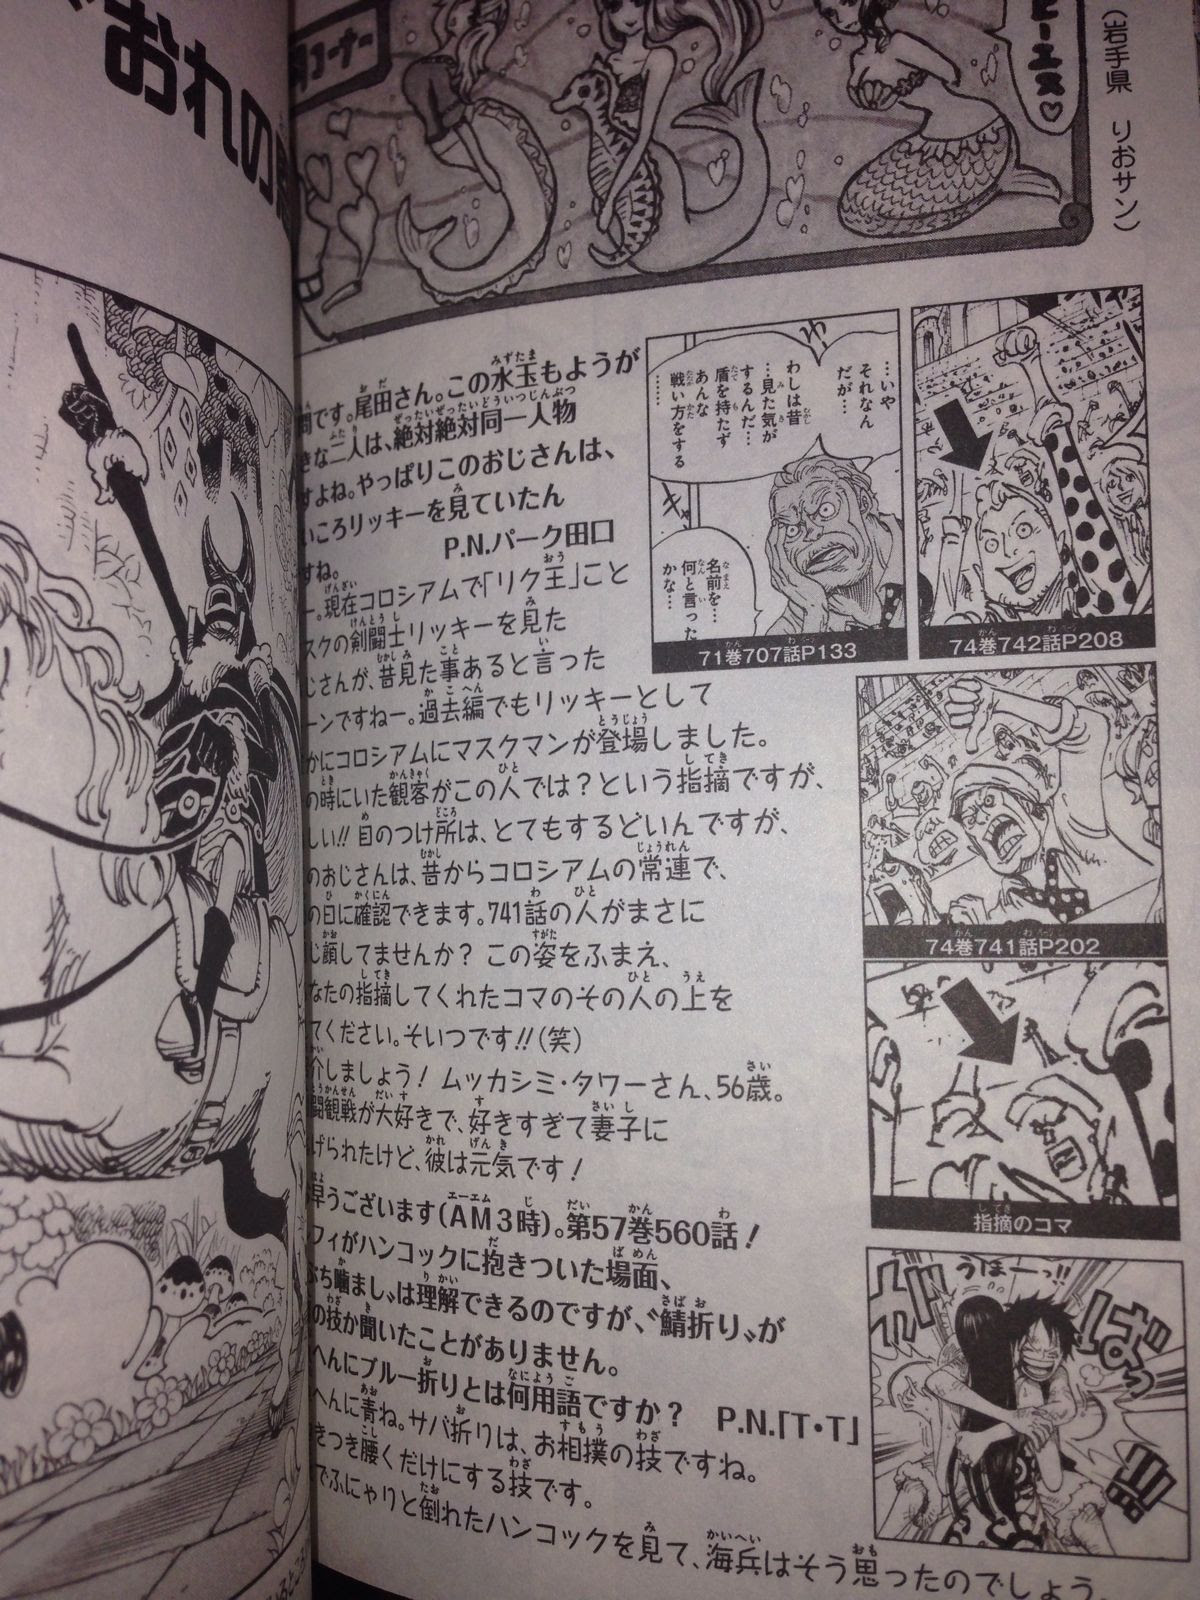 おれの
コーナー
ビーエス♡
(岩手県 りおサン)
問です。尾田さん。この水玉もようが
きな二人は、絶対絶対同一人物
すよね。やっぱりこのおじさんは、
いころリッキーを見ていたん
すね。
P.N.パーク田口
ー。現在コロシアムで「リク王」こと
スクの剣闘士リッキーを見た
じさんが、昔見た事あると言った
ーンですねー。過去編でもリッキーとして
かにコロシアムにマスクマンが登場しました。
の時にいた観客がこの人では?という指摘ですが、
しい!! 目のつけ所は、とてもするどいんですが、
のおじさんは、昔からコロシアムの常連で、
の日に確認できます。741話の人がまさに
じ顔してませんか? この姿をふまえ、
なたの指摘してくれたコマのその人の上を
てください。そいつです!!(笑)
介しましょう! ムッカシミ・タワーさん、56歳。
闘観戦が大好きで、好きすぎて妻子に
げられたけど、彼は元気です!
早うございます(AM3時)。第57巻560話!
フィがハンコックに抱きついた場面、
ぶち噛まし〟は理解できるのですが、〝鯖折り〟が
の技か聞いたことがありません。
へんにブルー折りとは何用語ですか? P.N.「T・T」
へんに青ね。サバ折りは、お相撲の技ですね。
きつき腰くだけにする技です。
でふにゃりと倒れたハンコックを見て、海兵はそう思ったのでしょう。
…いや
それなん
だが…
わしは昔
…見た気が
するんだ…
盾を持たず
あんな
戦い方をする
………
名前を…
何と言った
かな…
71巻707話P133
74巻742話P208
74巻741話P202
指摘のコマ
うほーっ!!
ガバ
ばっ
!!!